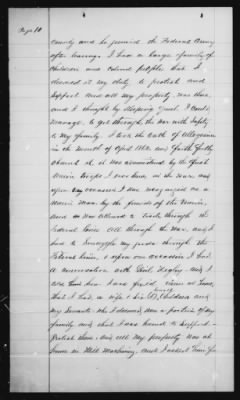 Page 10
County and he joined the Federal Army
after leaving. I had a large family of
children and colored people that I
deemed it my duty to protect and
support and all my property was there
and I thought by keeping quiet I could
manage to get through the war with safety
to my family. I took the Oath of Allegiance
in the month of April 1862 and
it. It was administered by the
troops I ever saw in the war, and
upon any occasion I was recognized as a
Union man by the friends of the Union,
and I was allowed to trade through the
Federal lines all through the war, and I
had to smuggle my goods through the
Federal lines, & upon one occasion I had
a conversation with Genl. Negley and I
told him
that I had a wife & six (6) children and
my servants who I deemed, were a portion of my
family and that I was bound to support &
protect them, and all my property was at
home in Mill Machinery, and